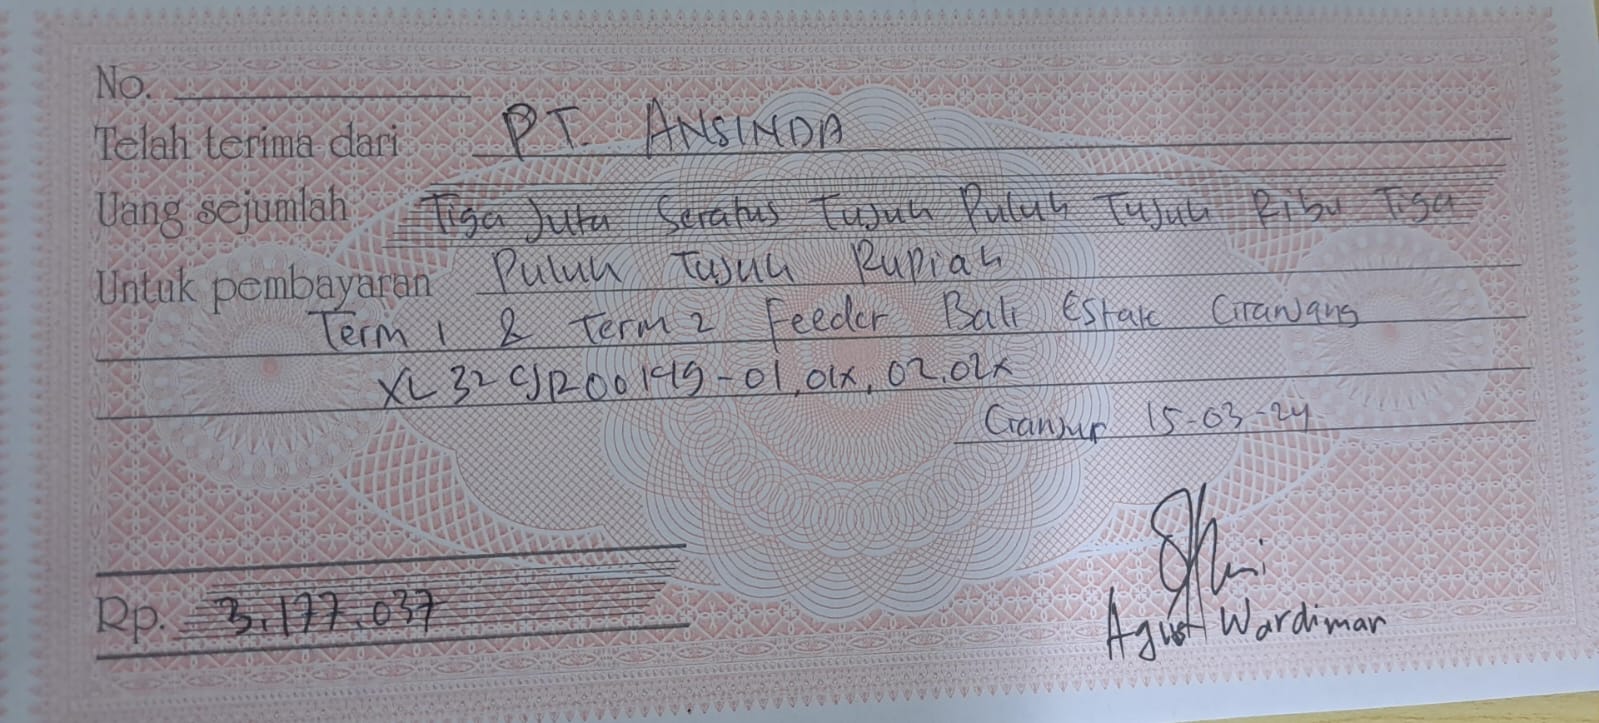 No.
Telah terima dari PT. ANSINDA
Uang sejumlah Tiga Juta Seratus Tujuh Puluh Tujuh Ribu Tiga
Untuk pembayaran Puluh Tujuh Rupiah
Term 1 & Term 2 Feeder Bali Estate Ciranjang
XL32CJR00149-01,01X,02,02X
Cianjur 15-03-24
Rp. 3.177.037
Agust Wardiman